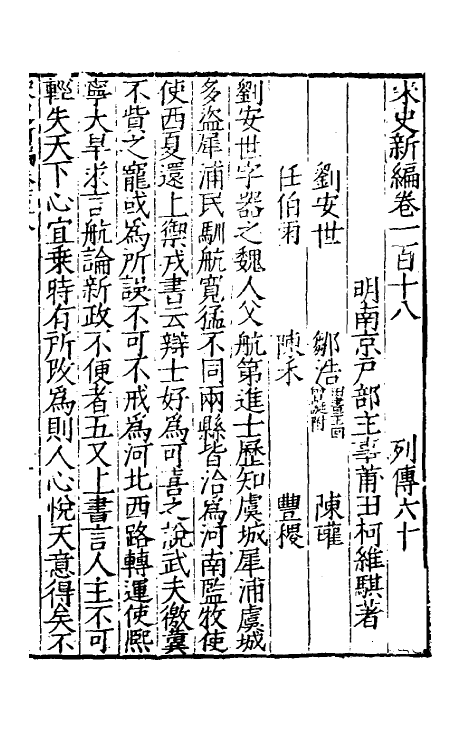 宋史新編卷一百十八　列傳六十
明南京戶部主事莆田柯維騏著
劉安世　鄒浩田晝王回曾誕附　陳瓘
任伯雨　陳禾　豐稷
劉安世字器之魏人父航第進士歷知虞城犀浦虞城
多盜犀浦民馴航寬猛不同兩縣皆治爲河南監牧使
使西夏還上禦戎書云辯士好爲可喜之說武夫徼冀
不貲之寵或爲所誤不可不戒爲河北西路轉運使熙
寧大旱求言航論新政不便者五又上書言人主不可
輕失天下心宜乘時有所改爲則人心悅天意得矣不